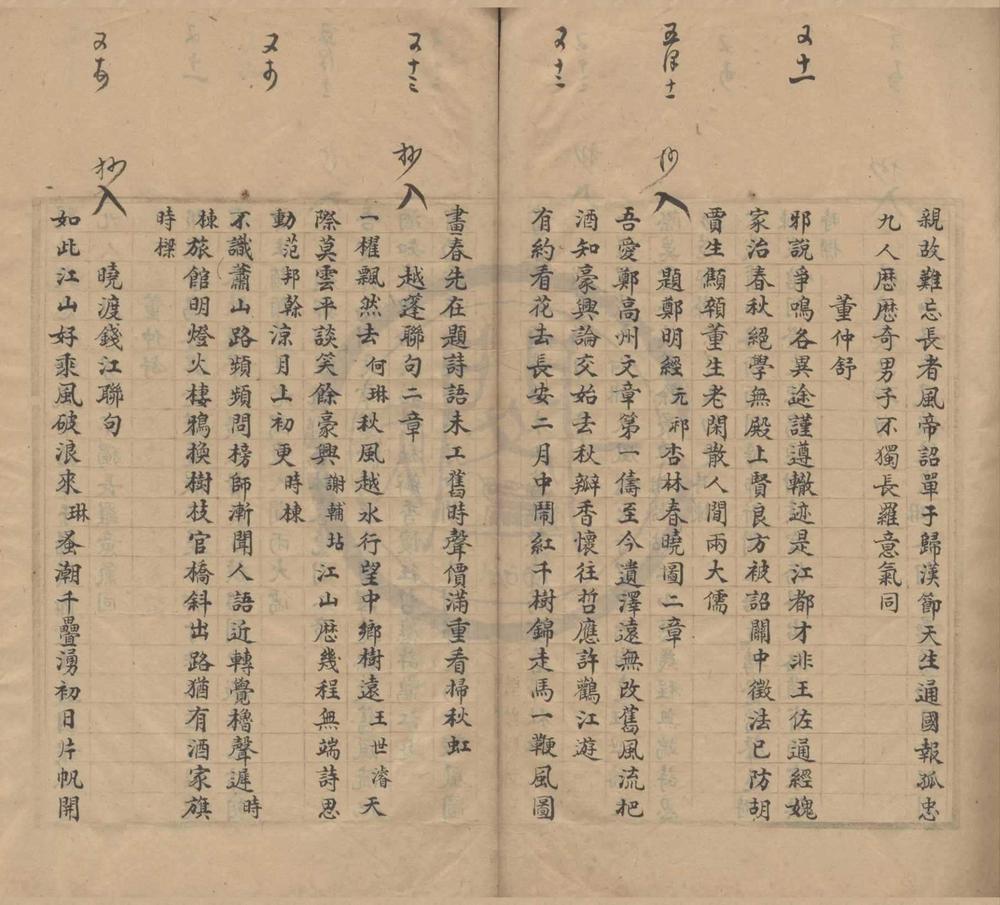 又十一
五月十一
又十二
抄
親故難忘長者風帝詔單于歸漢節天生通國報孤忠
九人歷歷奇男子不獨長羅意氣同
董仲舒
邪說爭鳴各異途謹遵轍迹是江都才非王佐通經媿
家治春秋絕學無殿上賢良方被詔關中徵法已防胡
賈生顦顇董生老閑散人間兩大儒
入題鄭明經元祁杏林春曉圖二章
吾愛鄭高州文章第一儔至今遺澤遠無改舊風流杷
酒知豪興論交始去秋瓣香懷往哲應許鸛江遊
有約看花去長安二月中鬧紅千樹錦走馬一鞭風圖
又十三
抄
畫春先在題詩語未工舊時聲價滿重看掃秋虹
入越蓬聯句二章
一櫂飄然去何琳秋風越水行望中鄉樹遠王世濬天
際莫雲平談笑餘豪興謝輔坫江山歷幾程無端詩思
動范邦幹涼月上初更時棟
不識蕭山路頻頻問榜師漸聞人語近轉覺櫓聲遲時
棟旅館明燈火棲鴉換樹枝官橋斜出路猶有酒家旗
時樑
抄
入曉渡錢江聯句
如此江山好乘風破浪來琳蚤潮千疊湧初日片帆開